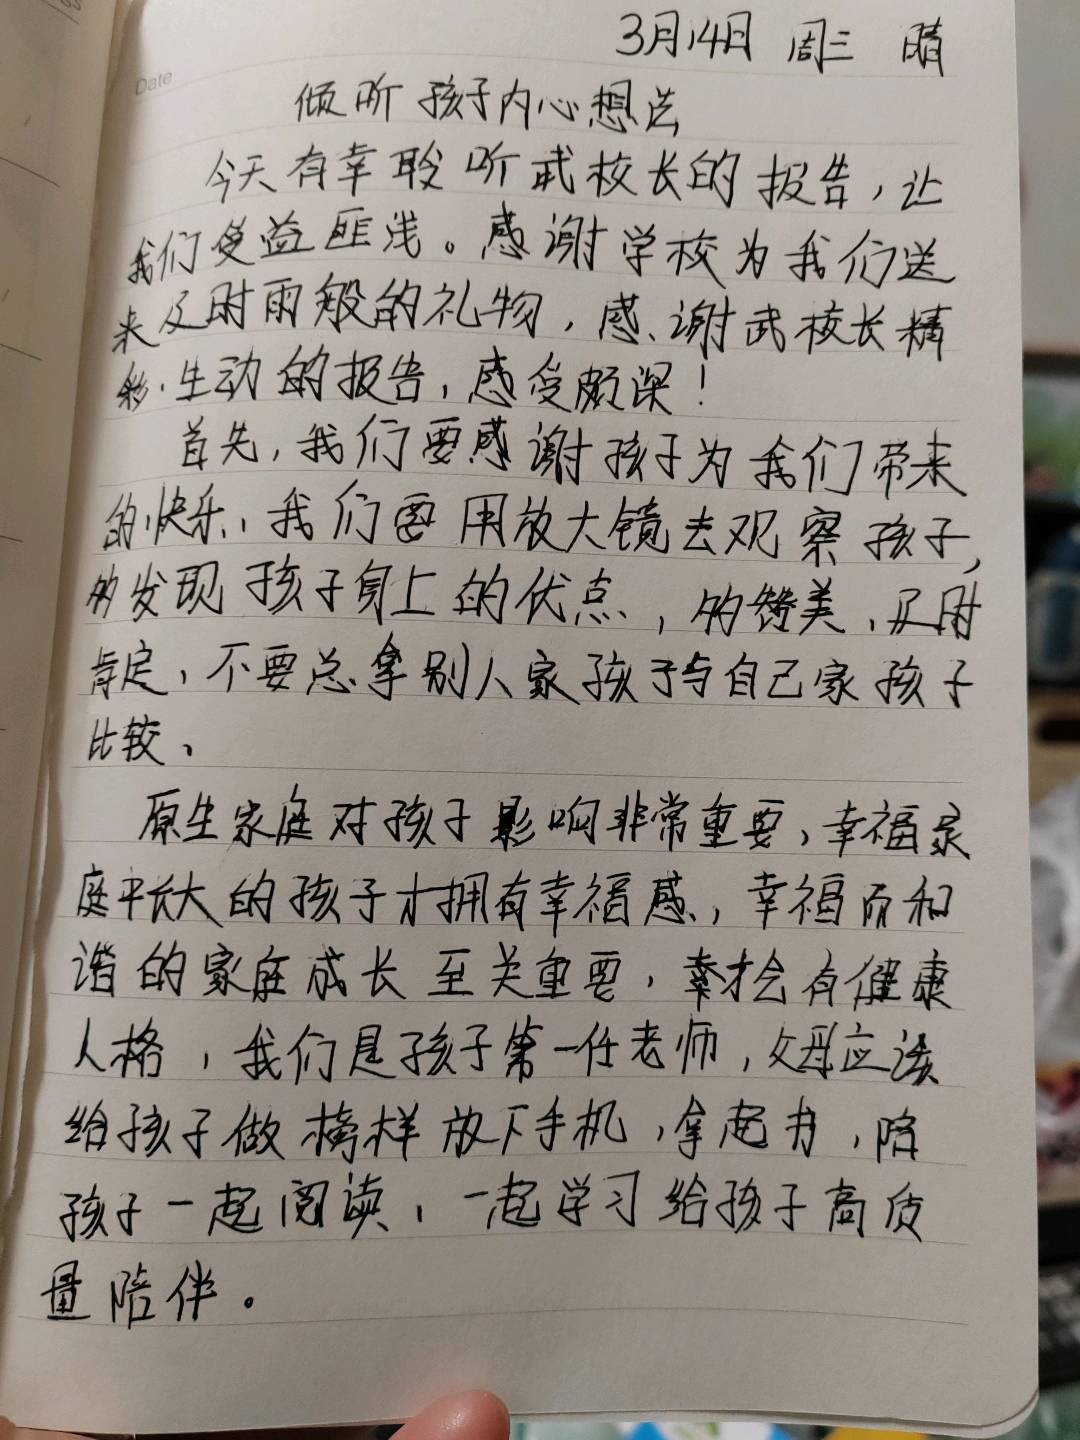 3月14日 周三 晴
Date
倾听孩子内心想法
今天有幸聆听武校长的报告，让
我们受益匪浅。感谢学校为我们送
来及时雨般的礼物，感谢武校长精
彩、生动的报告，感受颇深！
首先，我们要感谢孩子为我们带来
的快乐，我们要用放大镜去观察孩子，
的发现孩子身上的优点，的赞美，及时
肯定，不要总拿别人家孩子与自己家孩子
比较、
原生家庭对孩子影响非常重要，幸福家
庭中长大的孩子才拥有幸福感，幸福而和
谐的家庭成长至关重要，才会有健康
人格，我们是孩子第一任老师，父母应该
给孩子做榜样放下手机，拿起书，陪
孩子一起阅读，一起学习给孩子高质
量陪伴。